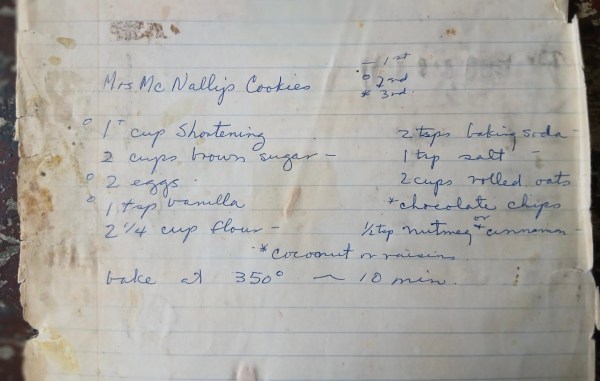 — 1st
° 2nd
* 3rd.
Mrs. Mc Nally's Cookies
° 1+ cup Shortening
2 cups brown sugar —
° 2 eggs
° 1 tsp vanilla
2 1/4 cup flour —
2 tsps baking soda —
1 tsp salt —
2 cups rolled oats
* chocolate chips
or
½ tsp nutmeg + cinnamon —
* coconut or raisins
bake at 350° ~ 10 min.